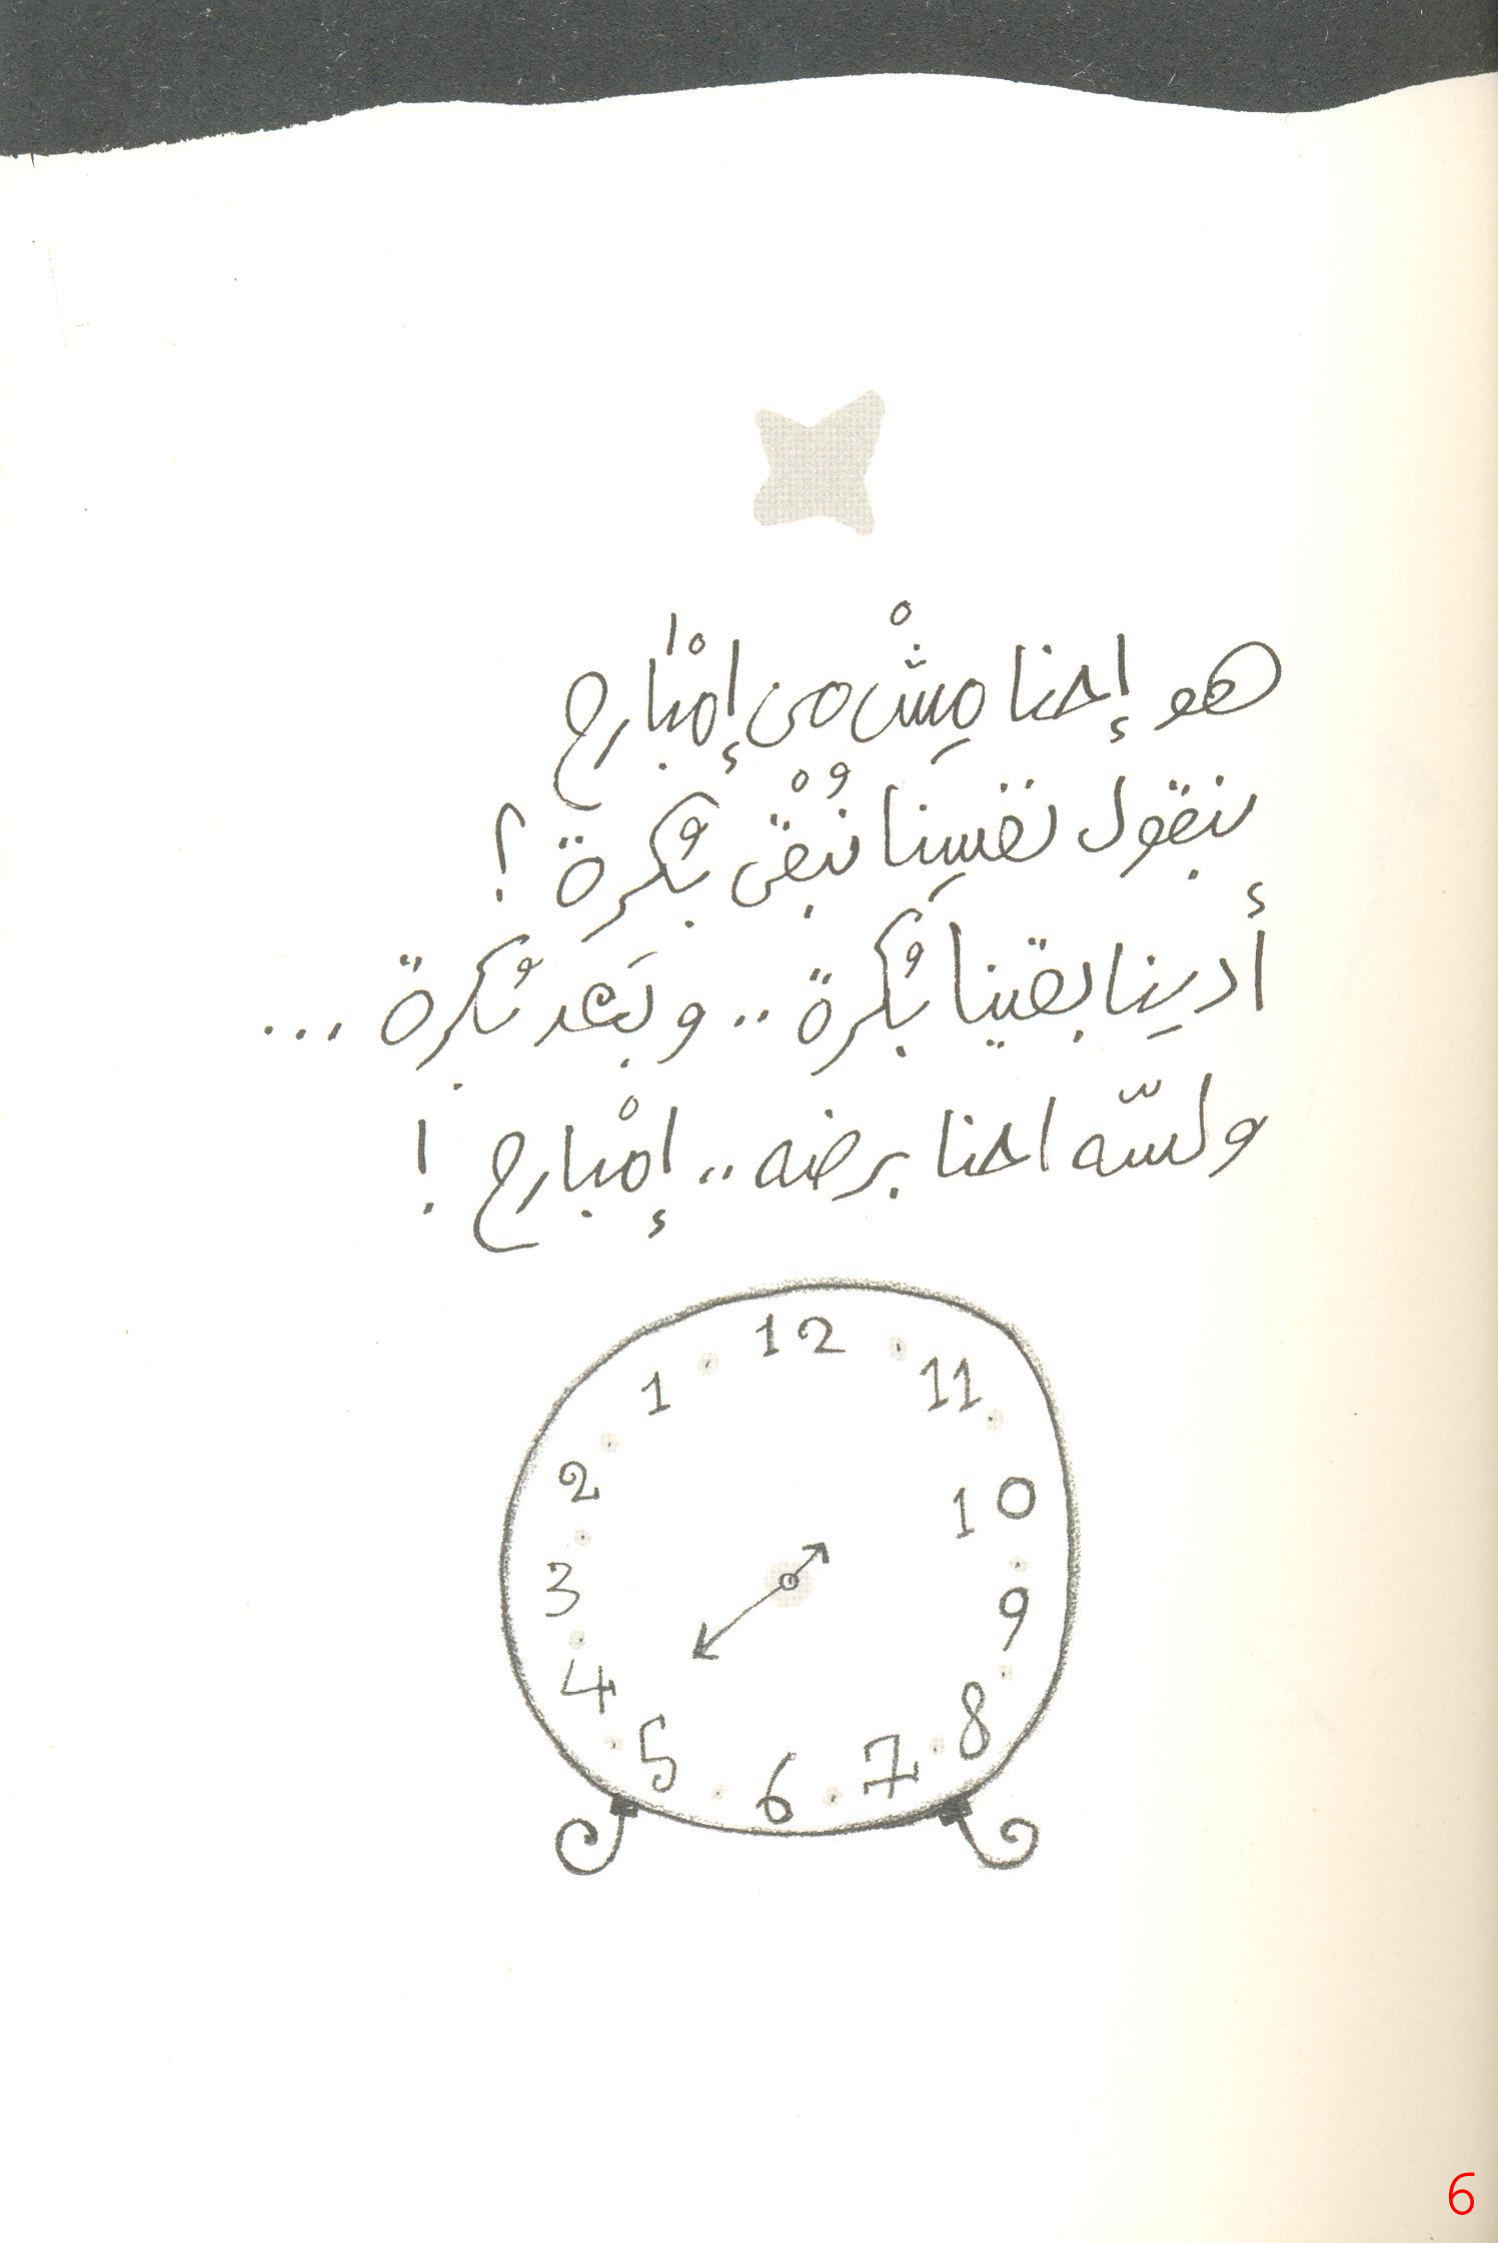 هو إحنا مِشْ من إمْبَارح
بنقول نفسِنا نُبْقى بُكرة ؟
أدينا بقينا بُكرة .. وبَعد بُكرة ...
ولسّه احنا برضه .. إمْبارح !
12
11
1
10
2
9
3
8
4
7
5
6
6